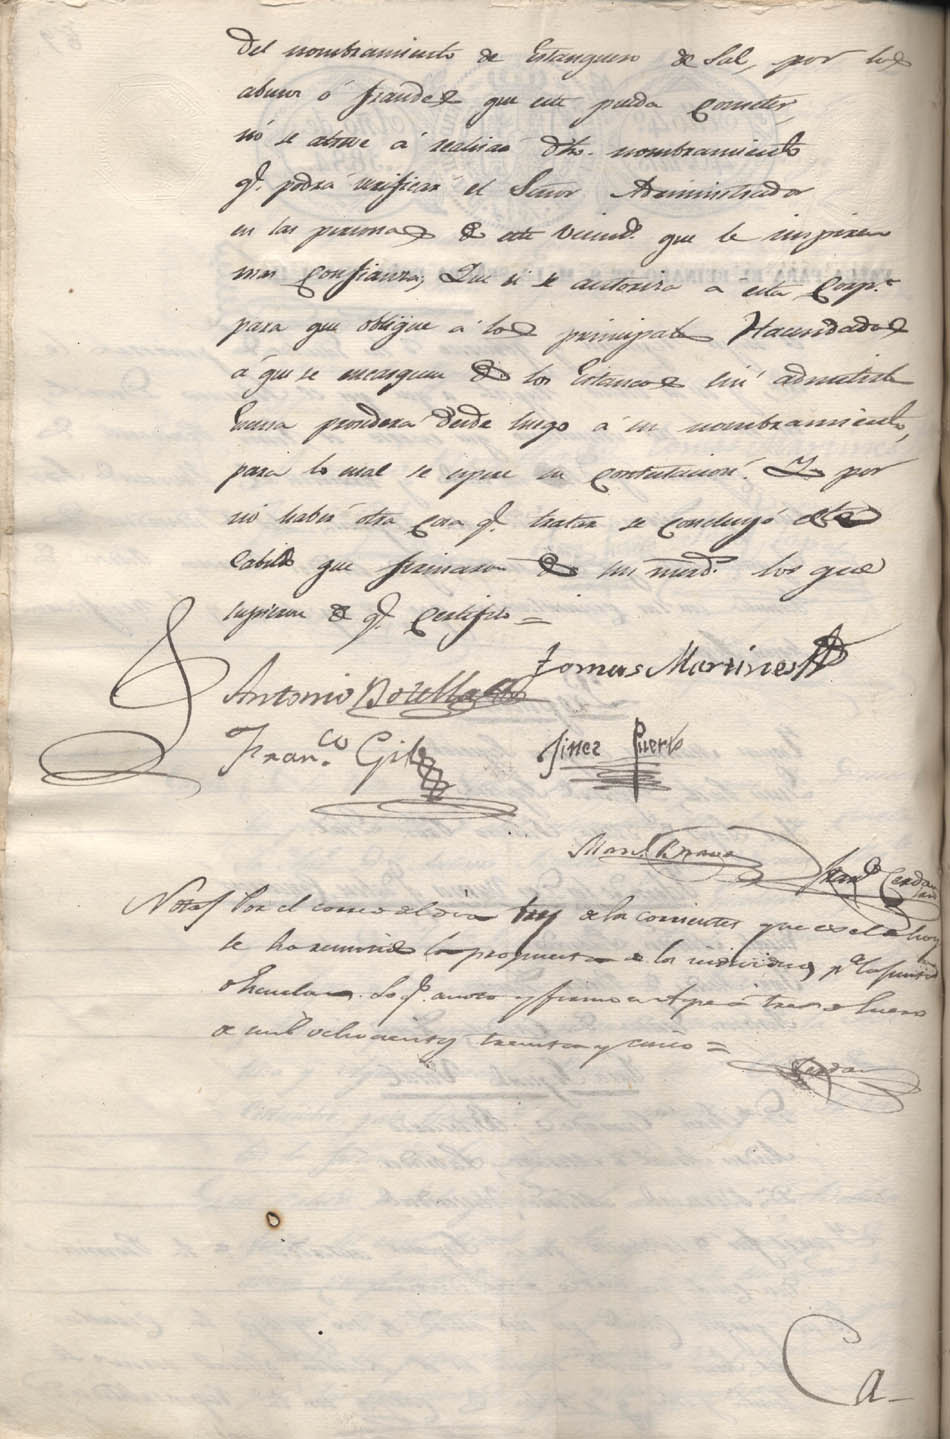 del nombramiento de Estanquero de Sal, por los
abusos ó fraudes que este pueda cometer,
nó se atreve á realizar dho. nombramiento
qe. podrá verificar el Señor Administrador
en las personas de este Vecindo. que le inspiren
mas confianza; Que si se autoriza a esta Corpn.
para que obligue á los principales Hacendados
á que se encarguen de los Estancos sin admitirles
Escusa procederá desde luego á su nombramiento,
para lo cual se espera su contestacion. Y por
nó haber otra cosa qe. tratar se concluyó este
Cabildo que firmaron de sus mrds. los que
supieron de qe. Certifico =
Tomas Martines
Antonio Botella
Franco. Gil
Jines Puerto
Manl.
Franco. Cerdan
Nota Por el correo del dia tres de los corrientes que es el de hoy
se ha remitido la propuesta de los individuos pa.
Lo qe. anoto y firmo a tres de Enero
de mil ochocientos treinta y cinco =
Cerdan
Ca-